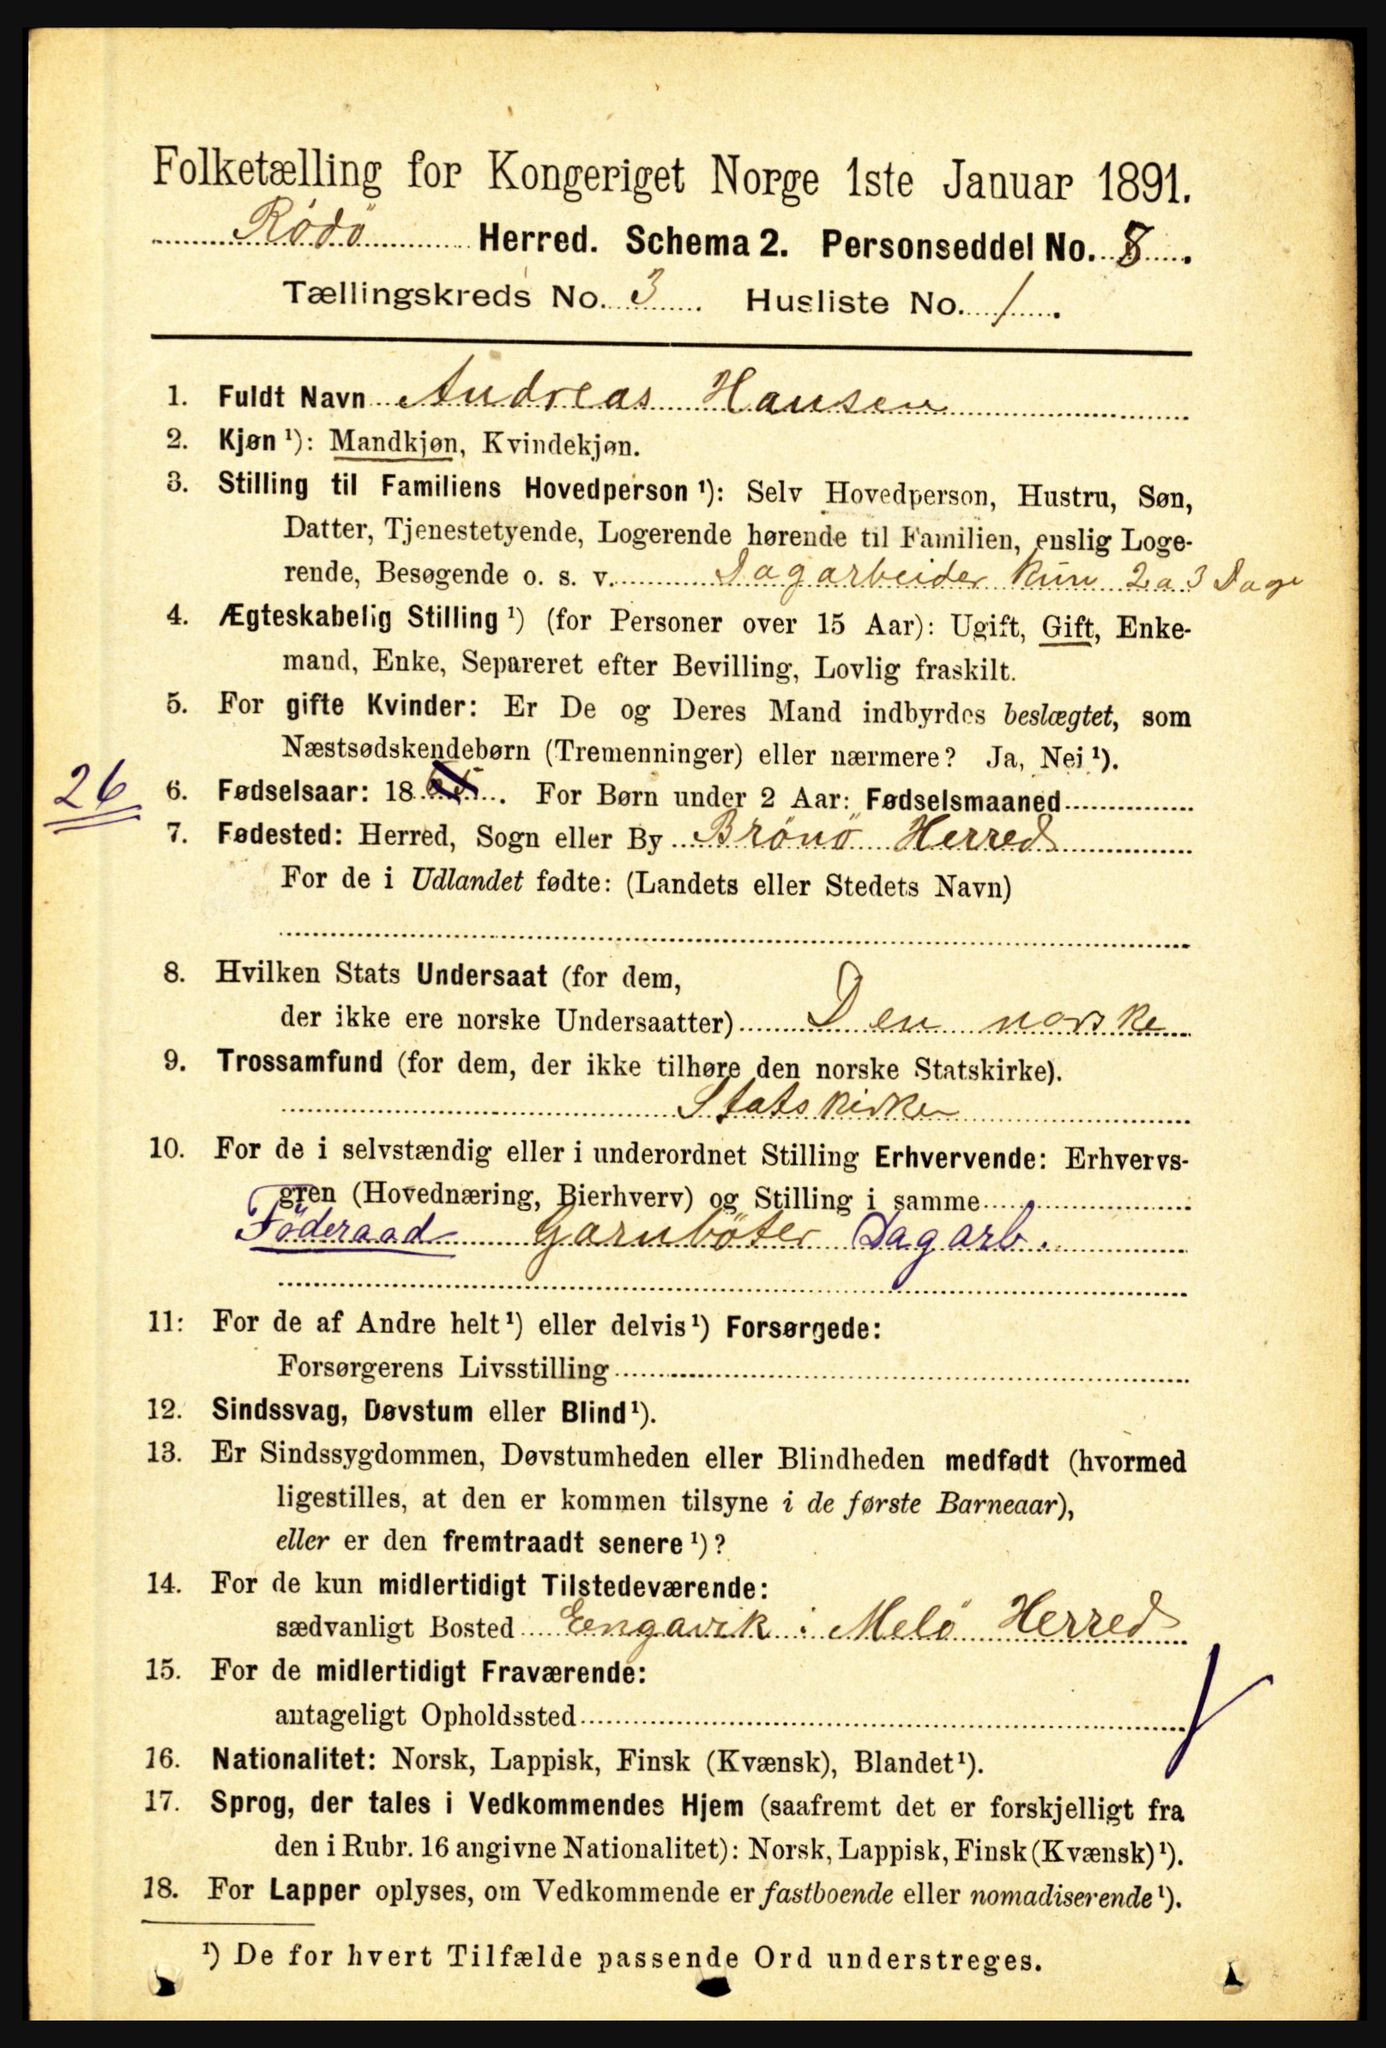 Folketælling for Kongeriget Norge 1ste Januar 1891.
Rödö Herred. Schema 2. Personseddel No. 8.
Tællingskreds No. 3. Husliste No. 1.
1. Fuldt Navn Andreas Hansen
2. Kjøn ¹): Mandkjøn, Kvindekjøn.
3. Stilling til Familiens Hovedperson ¹): Selv Hovedperson, Hustru, Søn,
Datter, Tjenestetyende, Logerende hørende til Familien, enslig Loge-
rende, Besøgende o. s. v. Dagarbeider kun 2 a 3 Dage
4. Ægteskabelig Stilling ¹) (for Personer over 15 Aar): Ugift, Gift, Enke-
mand, Enke, Separeret efter Bevilling, Lovlig fraskilt.
5. For gifte Kvinder: Er De og Deres Mand indbyrdes beslægtet, som
Næstsødskendebørn (Tremenninger) eller nærmere? Ja, Nei ¹).
26
6. Fødselsaar: 18 . For Børn under 2 Aar: Fødselsmaaned
7. Fødested: Herred, Sogn eller By Brönö Herred
For de i Udlandet fødte: (Landets eller Stedets Navn)
8. Hvilken Stats Undersaat (for dem,
der ikke ere norske Undersaatter) Den norske
9. Trossamfund (for dem, der ikke tilhøre den norske Statskirke).
Statskirken
10. For de i selvstændig eller i underordnet Stilling Erhvervende: Erhvervs-
gren (Hovednæring, Bierhverv) og Stilling i samme
Föderaad Garnböter Dagarb.
11: For de af Andre helt ¹) eller delvis ¹) Forsørgede:
Forsørgerens Livsstilling
12. Sindssvag, Døvstum eller Blind ¹).
13. Er Sindssygdommen, Døvstumheden eller Blindheden medfødt (hvormed
ligestilles, at den er kommen tilsyne i de første Barneaar),
eller er den fremtraadt senere ¹)?
14. For de kun midlertidigt Tilstedeværende:
sædvanligt Bosted Engavik i Melö Herred
15. For de midlertidigt Fraværende:
antageligt Opholdssted
16. Nationalitet: Norsk, Lappisk, Finsk (Kvænsk), Blandet ¹).
17. Sprog, der tales i Vedkommendes Hjem (saafremt det er forskjelligt fra
den i Rubr. 16 angivne Nationalitet): Norsk, Lappisk, Finsk (Kvænsk) ¹).
18. For Lapper oplyses, om Vedkommende er fastboende eller nomadiserende ¹).
¹) De for hvert Tilfælde passende Ord understreges.